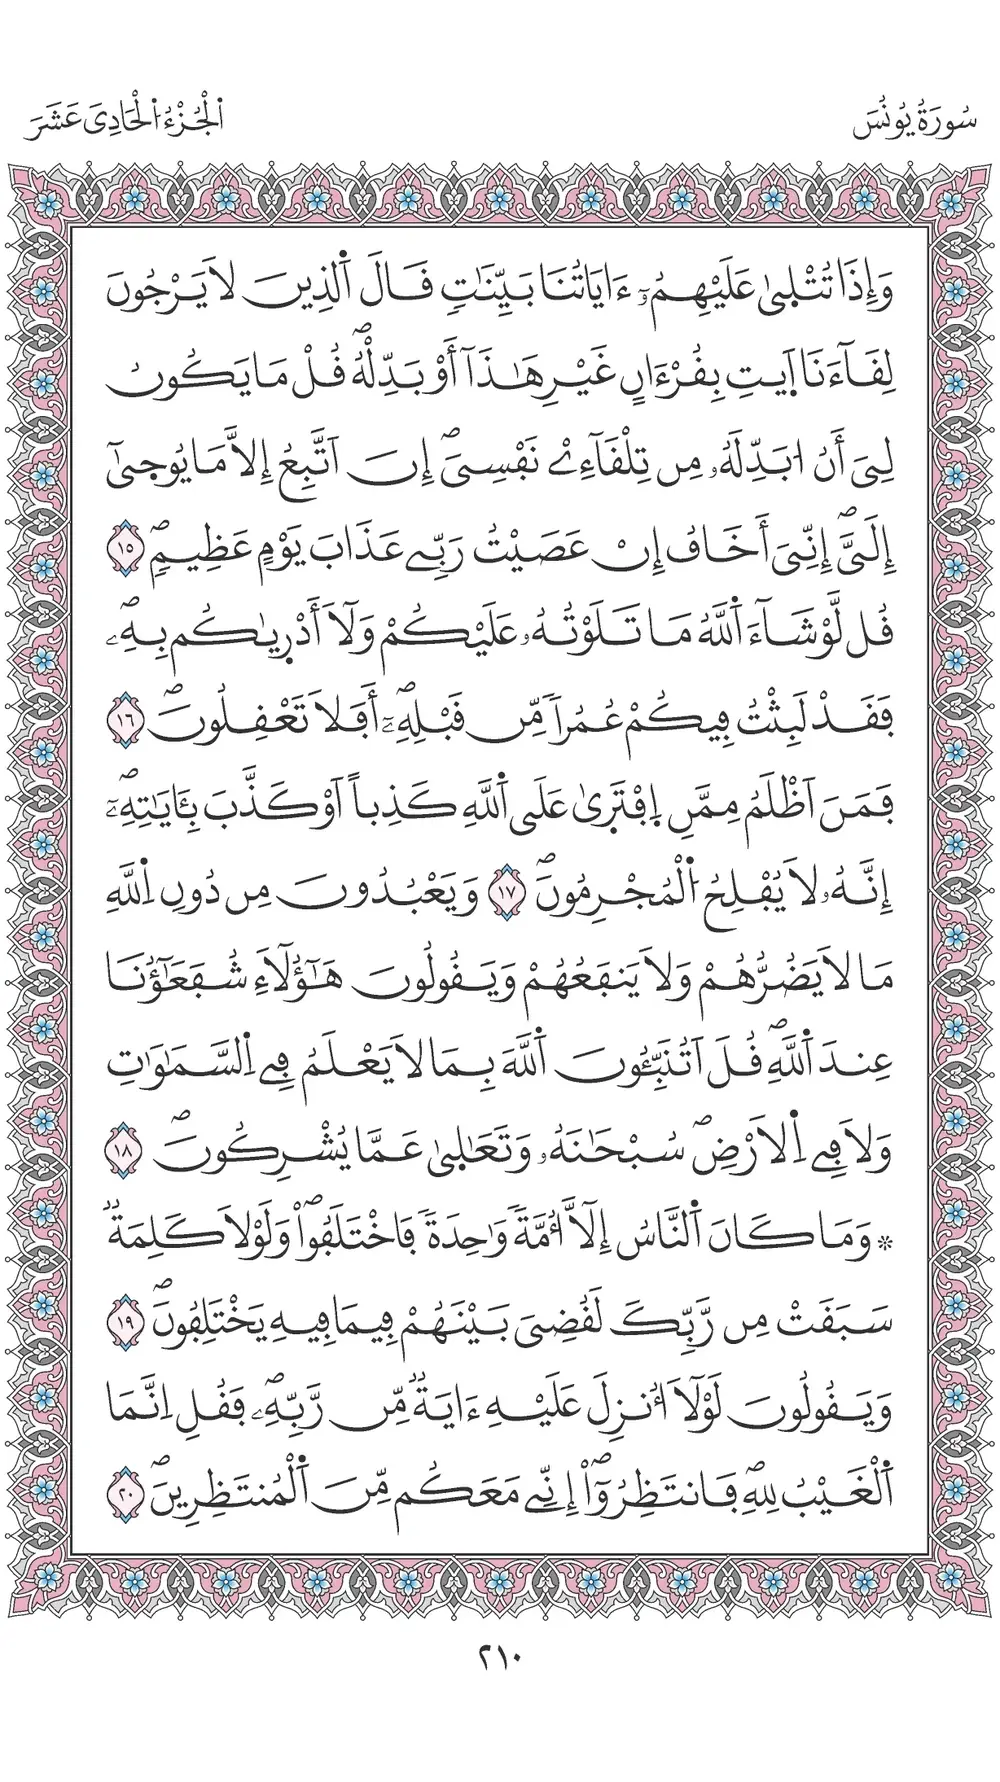 سُورَةُ يُونُسَ
اَ۬لْجُزْءُ اُ۬لْحَادِيَ عَشَرَ
وَإِذَا تُتْلَىٰ عَلَيْهِمُۥٓ ءَايَاتُنَا بَيِّنَٰتٖ قَالَ اَ۬لذِينَ لَا يَرْجُونَ
لِقَآءَنَا اَ۪يتِ بِقُرْءَانٍ غَيْرِ هَٰذَآ أَوْ بَدِّلْهُۖ قُلْ مَا يَكُونُ
لِيَ أَنُ ا۟بَدِّلَهُۥ مِن تِلْقَآءِےْ نَفْسِيَۖ إِنَ اَتَّبِعُ إِلَّا مَا يُوحَىٰٓ
إِلَيَّۖ إِنِّيَ أَخَافُ إِنْ عَصَيْتُ رَبِّے عَذَابَ يَوْمٍ عَظِيمٖۖ ١٥
قُل لَّوْ شَآءَ اَ۬للَّهُ مَا تَلَوْتُهُۥ عَلَيْكُمْ وَلَآ أَدْر۪يٰكُم بِهِۦۖ
فَقَدْ لَبِثْتُ فِيكُمْ عُمُراٗ مِّن قَبْلِهِۦٓۖ أَفَلَا تَعْقِلُونَۖ ١٦
فَمَنَ اَظْلَمُ مِمَّنِ اِ۪فْتَر۪ىٰ عَلَى اَ۬للَّهِ كَذِباً اَوْ كَذَّبَ بِـَٔايَٰتِهِۦٓۖ
إِنَّهُۥ لَا يُفْلِحُ اُ۬لْمُجْرِمُونَۖ ١٧ وَيَعْبُدُونَ مِن دُونِ اِ۬للَّهِ
مَا لَا يَضُرُّهُمْ وَلَا يَنفَعُهُمْ وَيَقُولُونَ هَٰٓؤُلَآءِ شُفَعَٰٓؤُنَا
عِندَ اَ۬للَّهِۖ قُلَ اَتُنَبِّـُٔونَ اَ۬للَّهَ بِمَا لَا يَعْلَمُ فِے اِ۬لسَّمَٰوَٰتِ
وَلَا فِے اِ۬لَارْضِۖ سُبْحَٰنَهُۥ وَتَعَٰلَىٰ عَمَّا يُشْرِكُونَۖ ١٨
* وَمَا كَانَ اَ۬لنَّاسُ إِلَّآ أُمَّةٗ وَٰحِدَةٗ فَاخْتَلَفُواْۖ وَلَوْلَا كَلِمَةٞ
سَبَقَتْ مِن رَّبِّكَ لَقُضِيَ بَيْنَهُمْ فِيمَا فِيهِ يَخْتَلِفُونَۖ ١٩
وَيَقُولُونَ لَوْلَآ أُنزِلَ عَلَيْهِ ءَايَةٞ مِّن رَّبِّهِۦۖ فَقُلِ اِنَّمَا
اَ۬لْغَيْبُ لِلهِۖ فَانتَظِرُوٓاْۖ إِنِّے مَعَكُم مِّنَ اَ۬لْمُنتَظِرِينَۖ ٢٠
٢١٠